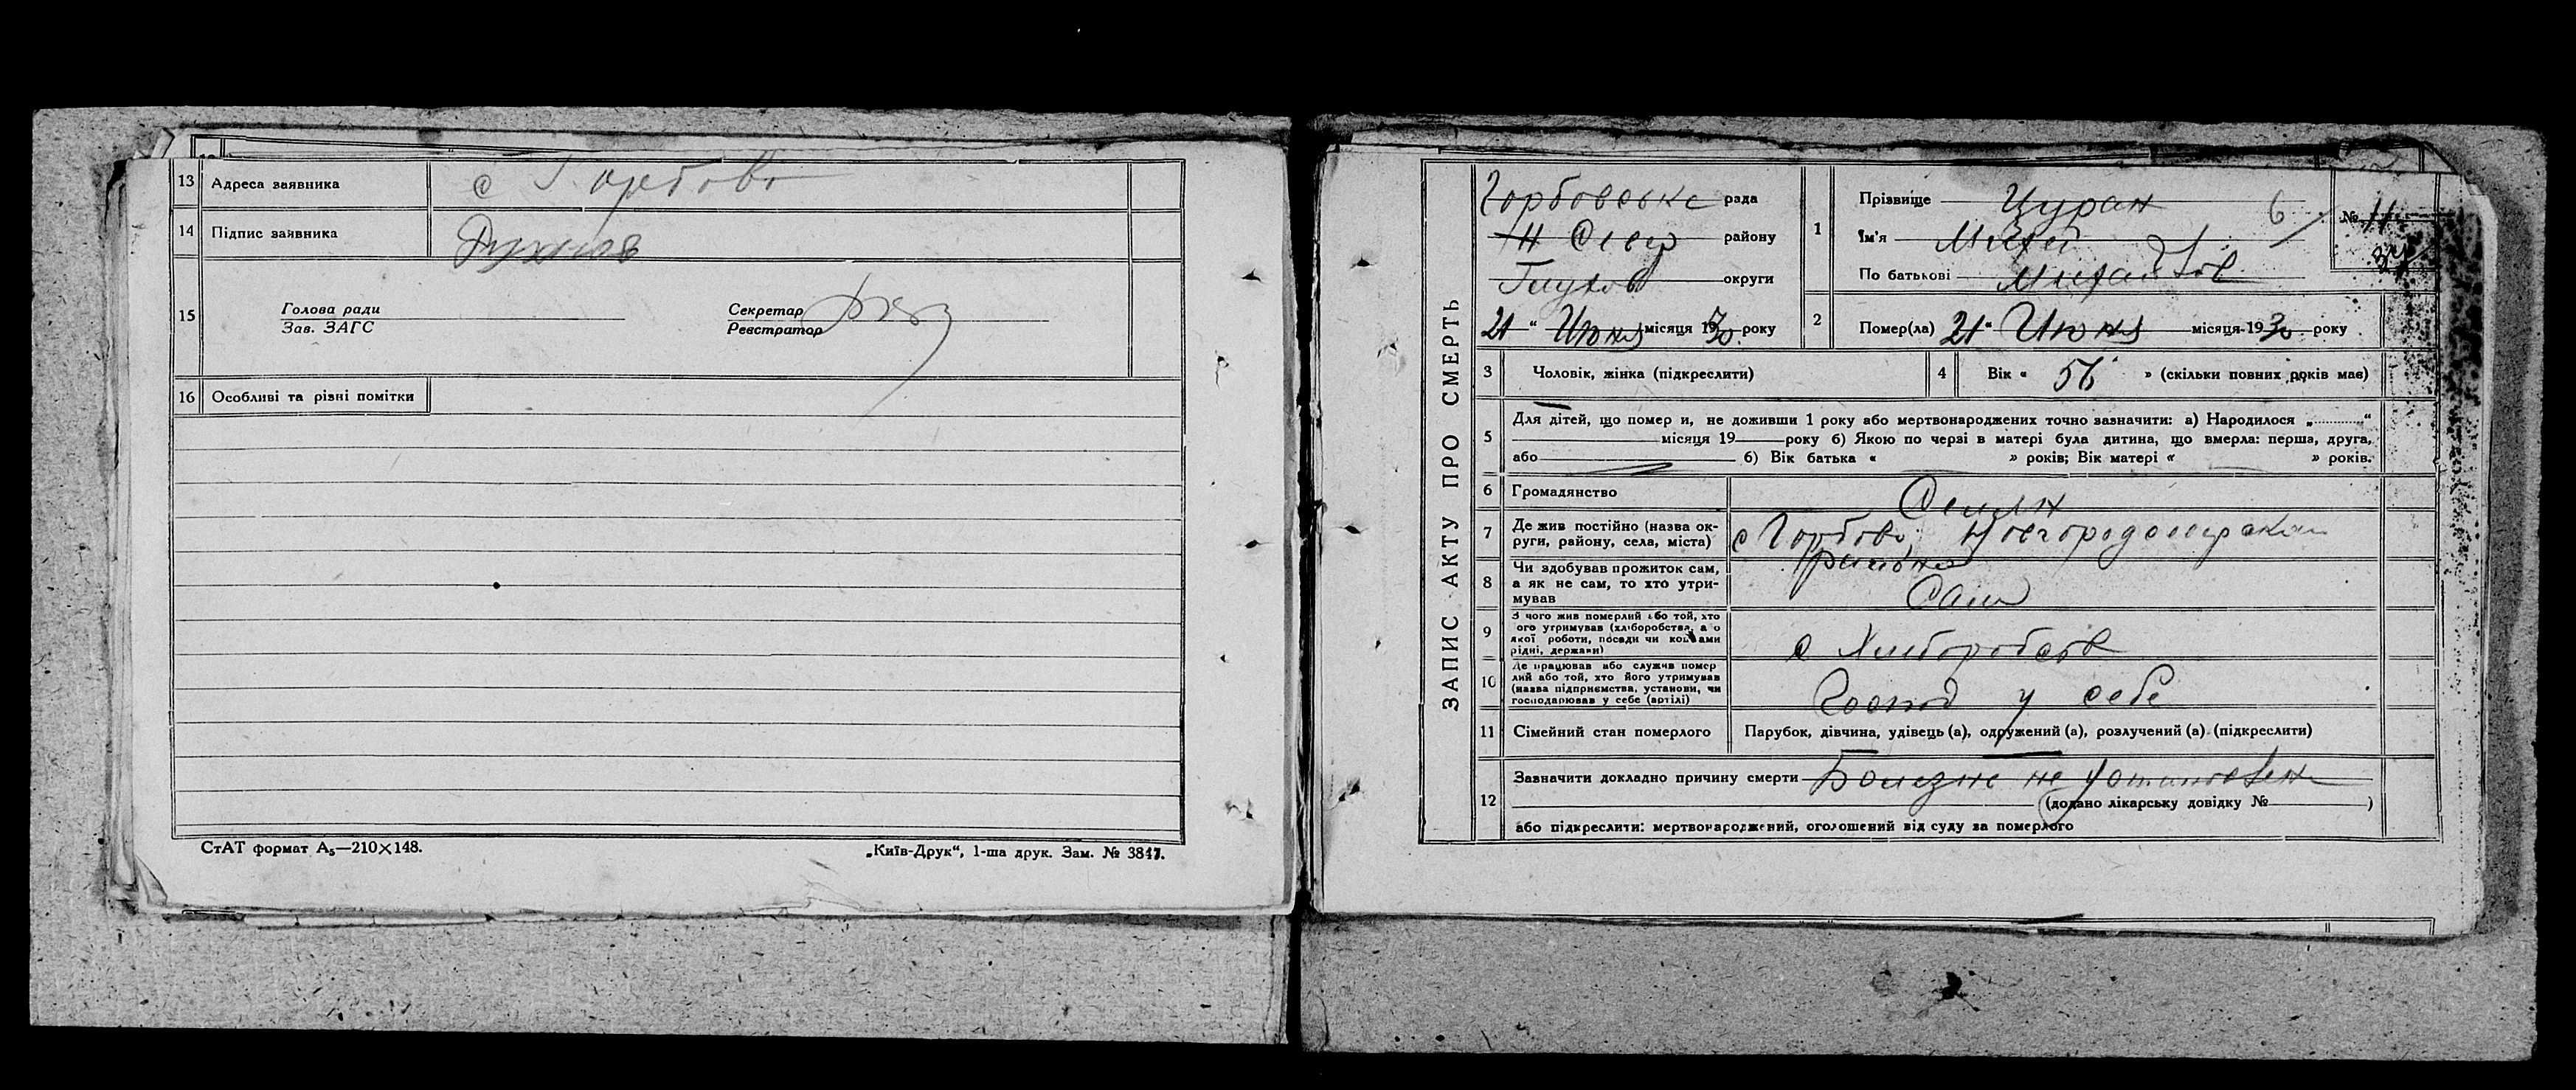 13 Адреса заявника с Горбово
14 Підпис заявника
15 Голова ради
Зав. ЗАГС
Секретар
Реєстратор
16 Особливі та різні помітки
СтАТ формат А₅—210×148.
„Київ-Друк“, 1-ша друк. Зам. № 3847.
ЗАПИС АКТУ ПРО СМЕРТЬ
Горбовське рада
Н Сівер району
Глухов округи
21 “ Июня місяця 1930 року
1 Прізвище Цуран 6
Ім'я Михей
По батькові Михайлов
№ 11
34
2 Помер(ла) 21 “ Июня місяця 1930 року
3 Чоловік, жінка (підкреслити)
4 Вік « 56 » (скільки повних років має)
5 Для дітей, що померли, не доживши 1 року або мертвонароджених точно зазначити: а) Народилося „ “
місяця 19 року б) Якою по черзі в матері була дитина, що вмерла: перша, друга,
або б) Вік батька « » років; Вік матері « » років.
6 Громадянство Селян
7 Де жив постійно (назва ок-
руги, району, села, міста) с Горбово, Новгородсіверском
района
8 Чи здобував прожиток сам,
а як не сам, то хто утри-
мував Сам
9 З чого жив померлий або той, хто
його утримував (хліборобства, а о
якої роботи, посади чи коштами
рідні, держави) с Хліборобств
10 Де працював або служив помер
лий або той, хто його утримував
(назва підприємства, установи, чи
господарював у себе (артілі) Господ у себе
11 Сімейний стан померлого Парубок, дівчина, удівець (а), одружений (а), розлучений (а) (підкреслити)
12 Зазначити докладно причину смерти Болезнь не установлен
(додано лікарську довідку № )
або підкреслити: мертвонароджений, оголошений від суду за померлого